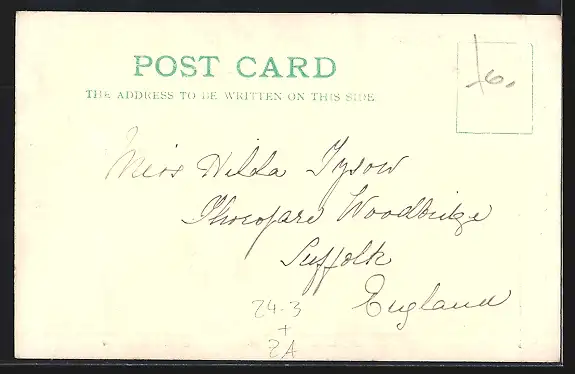 POST CARD
THE ADDRESS TO BE WRITTEN ON THIS SIDE
6.
Miss Hilda Tyson
Woodbridge
Suffolk
England
24.3
+
2A